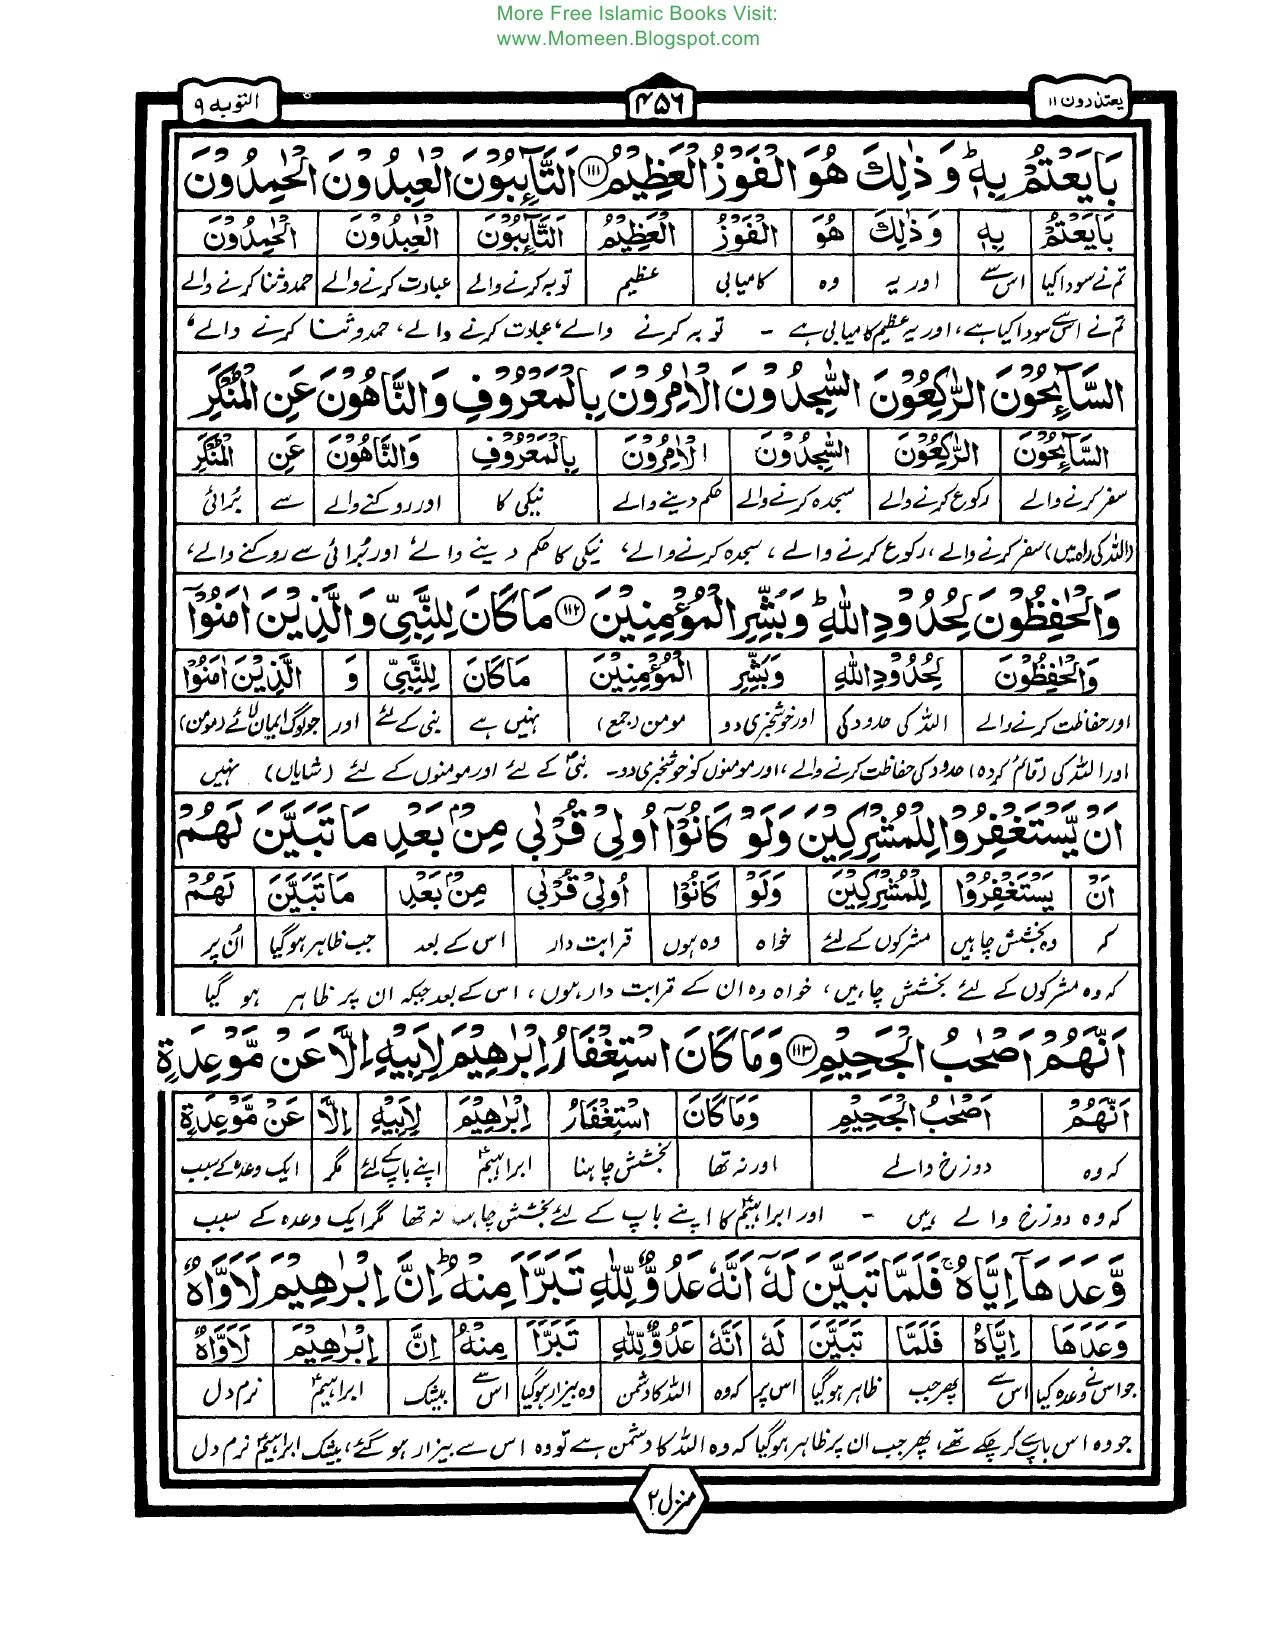 More Free Islamic Books Visit:
www.Momeen.Blogspot.com
یعتذرون ۱۱ ۴۵۶ التوبه ۹
بَايَعْتُمْ بِهٖ ؕ وَذٰلِكَ هُوَ الْفَوْزُ الْعَظِيْمُ ۱۱۱ اَلتَّآئِبُوْنَ الْعٰبِدُوْنَ الْحٰمِدُوْنَ
بَايَعْتُمْ بِهٖ وَذٰلِكَ هُوَ الْفَوْزُ الْعَظِيْمُ التَّآئِبُوْنَ الْعٰبِدُوْنَ الْحٰمِدُوْنَ
تم نے سودا کیا اس سے اور یہ وہ کامیابی عظیم توبہ کرنے والے عبادت کرنے والے حمدوثنا کرنے والے
تم نے اس سے سودا کیا ہے، اور یہ عظیم کامیابی ہے - توبہ کرنے والے، عبادت کرنے والے، حمدوثنا کرنے والے،
السَّآئِحُوْنَ الرّٰكِعُوْنَ السّٰجِدُوْنَ الْاٰمِرُوْنَ بِالْمَعْرُوْفِ وَالنَّاهُوْنَ عَنِ الْمُنْكَرِ
السَّآئِحُوْنَ الرّٰكِعُوْنَ السّٰجِدُوْنَ الْاٰمِرُوْنَ بِالْمَعْرُوْفِ وَالنَّاهُوْنَ عَنِ الْمُنْكَرِ
سفر کرنے والے رکوع کرنے والے سجدہ کرنے والے حکم دینے والے نیکی کا اور روکنے والے سے بُرائی
(اللہ کی راہ میں) سفر کرنے والے، رکوع کرنے والے، سجدہ کرنے والے، نیکی کا حکم دینے والے، اور بُرائی سے روکنے والے،
وَالْحٰفِظُوْنَ لِحُدُوْدِ اللّٰهِ ؕ وَبَشِّرِ الْمُؤْمِنِيْنَ ۱۱۲ مَا كَانَ لِلنَّبِيِّ وَالَّذِيْنَ اٰمَنُوْٓا
وَالْحٰفِظُوْنَ لِحُدُوْدِ اللّٰهِ وَبَشِّرِ الْمُؤْمِنِيْنَ مَا كَانَ لِلنَّبِيِّ وَ الَّذِيْنَ اٰمَنُوْٓا
اور حفاظت کرنے والے اللہ کی حدود کی اور خوشخبری دو مومن (جمع) نہیں ہے نبی کے لئے اور جو لوگ ایمان لائے (مومن)
اور اللہ کی (قائم کردہ) حدود کی حفاظت کرنے والے، اور مومنوں کو خوشخبری دو - نبیؐ کے لئے اور مومنوں کے لئے (شایاں) نہیں
اَنْ يَّسْتَغْفِرُوْا لِلْمُشْرِكِيْنَ وَلَوْ كَانُوْٓا اُولِيْ قُرْبٰى مِنْۢ بَعْدِ مَا تَبَيَّنَ لَهُمْ
اَنْ يَسْتَغْفِرُوْا لِلْمُشْرِكِيْنَ وَلَوْ كَانُوْٓا اُولِيْ قُرْبٰى مِنْۢ بَعْدِ مَا تَبَيَّنَ لَهُمْ
کہ وہ بخشش چاہیں مشرکوں کے لئے خواہ وہ ہوں قرابت دار اس کے بعد جب ظاہر ہو گیا اُن پر
کہ وہ مشرکوں کے لئے بخشش چاہیں، خواہ وہ ان کے قرابت دار ہوں، اس کے بعد جبکہ ان پر ظاہر ہو گیا
اَنَّهُمْ اَصْحٰبُ الْجَحِيْمِ ۱۱۳ وَمَا كَانَ اسْتِغْفَارُ اِبْرٰهِيْمَ لِاَبِيْهِ اِلَّا عَنْ مَّوْعِدَةٍ
اَنَّهُمْ اَصْحٰبُ الْجَحِيْمِ وَمَا كَانَ اسْتِغْفَارُ اِبْرٰهِيْمَ لِاَبِيْهِ اِلَّا عَنْ مَّوْعِدَةٍ
کہ وہ دوزخ والے اور نہ تھا بخشش چاہنا ابراہیمؑ اپنے باپ کے لئے مگر ایک وعدہ کے سبب
کہ وہ دوزخ والے ہیں - اور ابراہیمؑ کا اپنے باپ کے لئے بخشش چاہنا نہ تھا مگر ایک وعدہ کے سبب
وَّعَدَهَآ اِيَّاهُ ۚ فَلَمَّا تَبَيَّنَ لَهٗٓ اَنَّهٗ عَدُوٌّ لِّلّٰهِ تَبَرَّاَ مِنْهُ ؕ اِنَّ اِبْرٰهِيْمَ لَاَوَّاهٌ
وَعَدَهَا اِيَّاهُ فَلَمَّا تَبَيَّنَ لَهٗ اَنَّهٗ عَدُوٌّ لِّلّٰهِ تَبَرَّاَ مِنْهُ اِنَّ اِبْرٰهِيْمَ لَاَوَّاهٌ
جو اس نے وعدہ کیا اس سے پھر جب ظاہر ہو گیا اس پر کہ وہ اللہ کا دشمن وہ بیزار ہو گیا اس سے بیشک ابراہیمؑ نرم دل
جو وہ اس باپ سے کر چکے تھے، پھر جب ان پر ظاہر ہو گیا کہ وہ اللہ کا دشمن ہے تو وہ اس سے بیزار ہو گئے، بیشک ابراہیمؑ نرم دل
منزل ۲